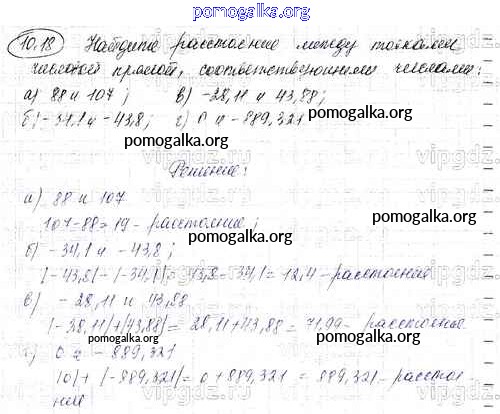 pomogalka.org
10.18 Найдите расстояние между точками
числовой прямой, соответственными числами:
а) 88 и 107; в) -28,11 и 43,88;
б) -34,1 и -43,8; г) 0 и -889,321
pomogalka.org
pomogalka.org
Решение:
а) 88 и 107
pomogalka.org
107-88=19 - расстояние;
pomogalka.org
б) -34,1 и -43,8;
|-43,8|-|-34,1|=43,8-34,1=12,4 - расстояние
в) -28,11 и 43,88
|-28,11|+|43,88|=28,11+43,88=71,99 - расстояние
pomogalka.org
pomogalka.org
г) 0 и -889,321
|0|+|-889,321|=0+889,321=889,321 - расстоя-
ние
pomogalka.org